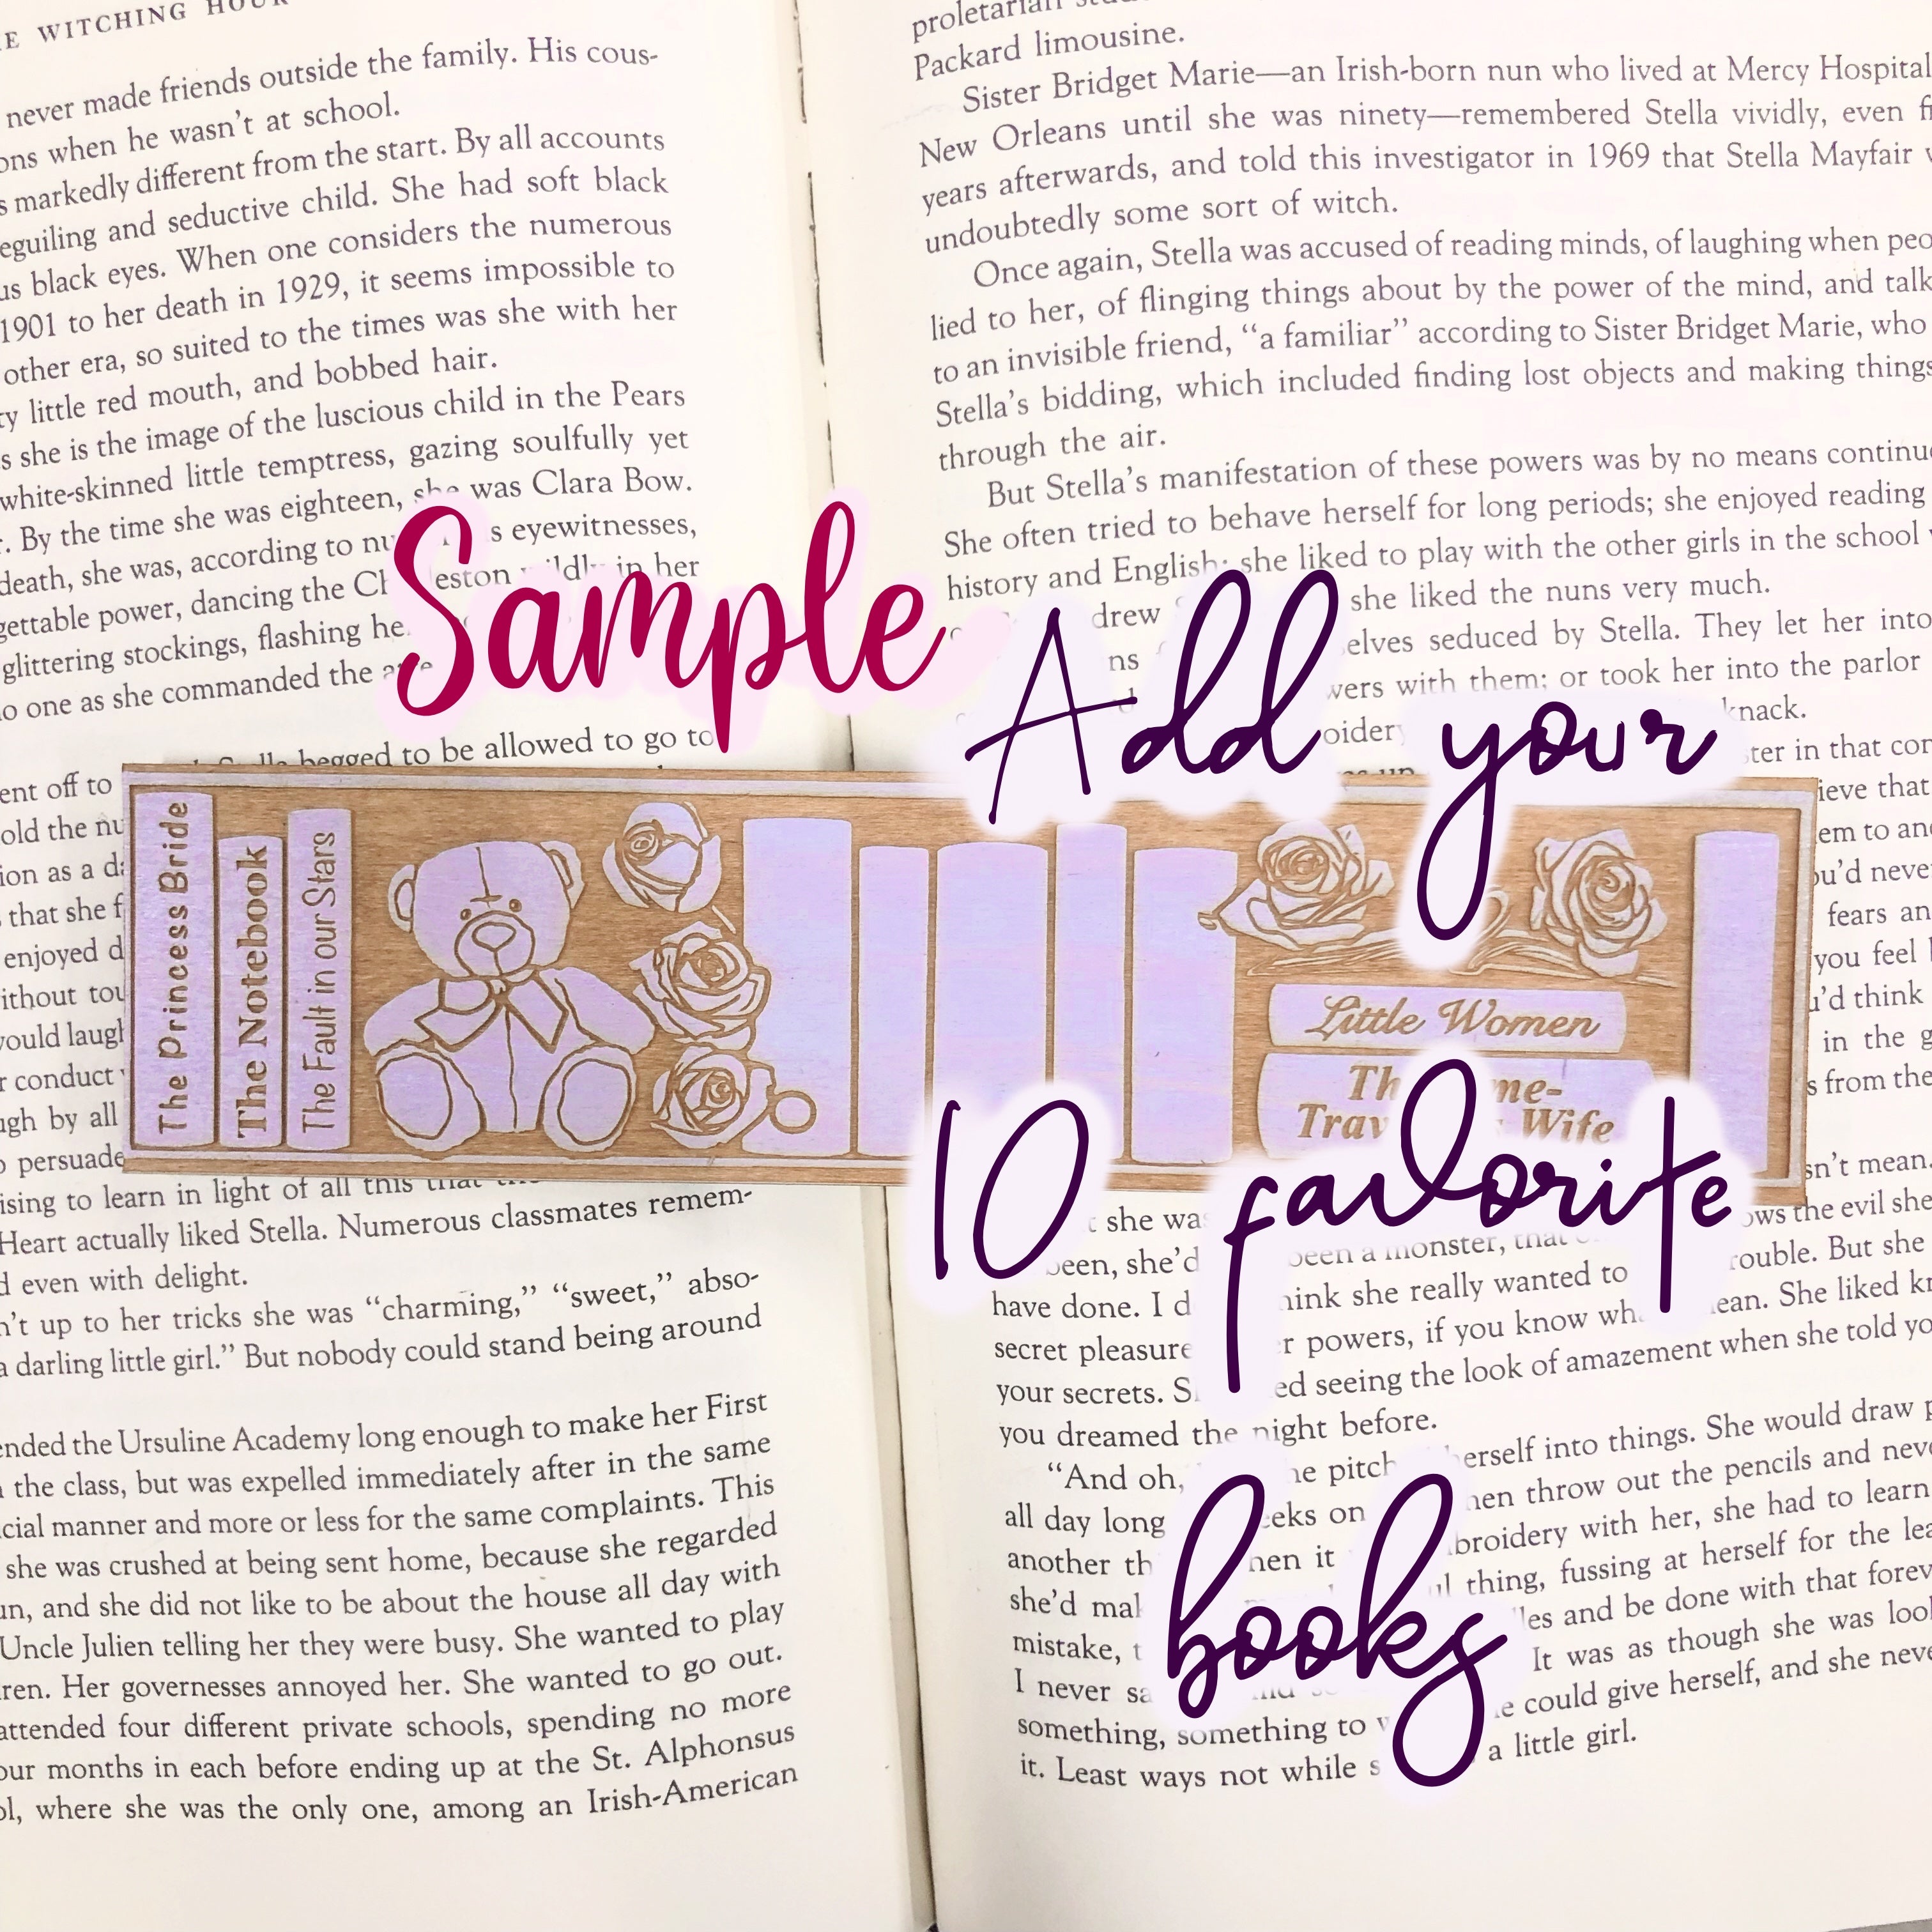 THE WITCHING HOUR
never made friends outside the family. His cous-
ons when he wasn't at school.
s markedly different from the start. By all accounts
eguiling and seductive child. She had soft black
us black eyes. When one considers the numerous
1901 to her death in 1929, it seems impossible to
other era, so suited to the times was she with her
ty little red mouth, and bobbed hair.
s she is the image of the luscious child in the Pears
white-skinned little temptress, gazing soulfully yet
. By the time she was eighteen, she was Clara Bow.
death, she was, according to nu s eyewitnesses,
gettable power, dancing the Ch eston wildly in her
glittering stockings, flashing he
o one as she commanded the
begged to be allowed to go to
ent off to
old the nu
ion as a da
that she f
enjoyed d
ithout tou
vould laugh
r conduct
ugh by all
o persuade
ising to learn in light of all this that
Heart actually liked Stella. Numerous classmates remem-
d even with delight.
n't up to her tricks she was “charming,” “sweet,” abso-
a darling little girl.” But nobody could stand being around
ended the Ursuline Academy long enough to make her First
n the class, but was expelled immediately after in the same
cial manner and more or less for the same complaints. This
she was crushed at being sent home, because she regarded
un, and she did not like to be about the house all day with
Uncle Julien telling her they were busy. She wanted to play
ren. Her governesses annoyed her. She wanted to go out.
attended four different private schools, spending no more
our months in each before ending up at the St. Alphonsus
ol, where she was the only one, among an Irish-American
proletarian
Packard limousine.
Sister Bridget Marie—an Irish-born nun who lived at Mercy Hospital
New Orleans until she was ninety—remembered Stella vividly, even fi
years afterwards, and told this investigator in 1969 that Stella Mayfair w
undoubtedly some sort of witch.
Once again, Stella was accused of reading minds, of laughing when peo
lied to her, of flinging things about by the power of the mind, and talk
to an invisible friend, “a familiar” according to Sister Bridget Marie, who
Stella's bidding, which included finding lost objects and making things
through the air.
But Stella's manifestation of these powers was by no means continuo
She often tried to behave herself for long periods; she enjoyed reading
history and English; she liked to play with the other girls in the school
drew she liked the nuns very much.
ns elves seduced by Stella. They let her into
wers with them; or took her into the parlor
oidery knack.
ster in that con
ieve that
em to and
ou'd never
fears an
you feel
u'd think
in the g
s from the
sn't mean.
she was ows the evil she
been, she'd been a monster, that rouble. But she
have done. I d hink she really wanted to
secret pleasure r powers, if you know wh mean. She liked kn
your secrets. S ed seeing the look of amazement when she told yo
you dreamed the night before.
“And oh, he pitch herself into things. She would draw p
all day long eeks on hen throw out the pencils and neve
another th hen it broidery with her, she had to learn
she'd mak ul thing, fussing at herself for the lea
mistake, t les and be done with that forev
I never sa It was as though she was look
something, something to w e could give herself, and she neve
it. Least ways not while s a little girl.
Sample
Add your
10 favorite
books
The Princess Bride
The Notebook
The Fault in our Stars
Little Women
The me-
Trav Wife